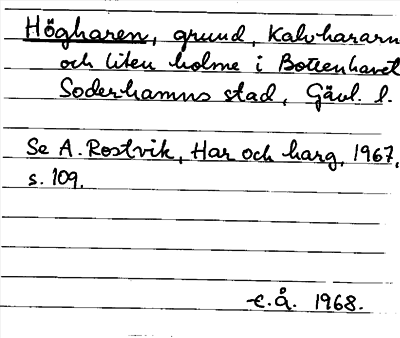 Högharen, grund, Kalvhararna
och liten holme i Bottenhavet
Söderhamns stad, Gävl. l.
Se A. Rostvik, Har och harg, 1967,
s. 109.
E.Å. 1968.